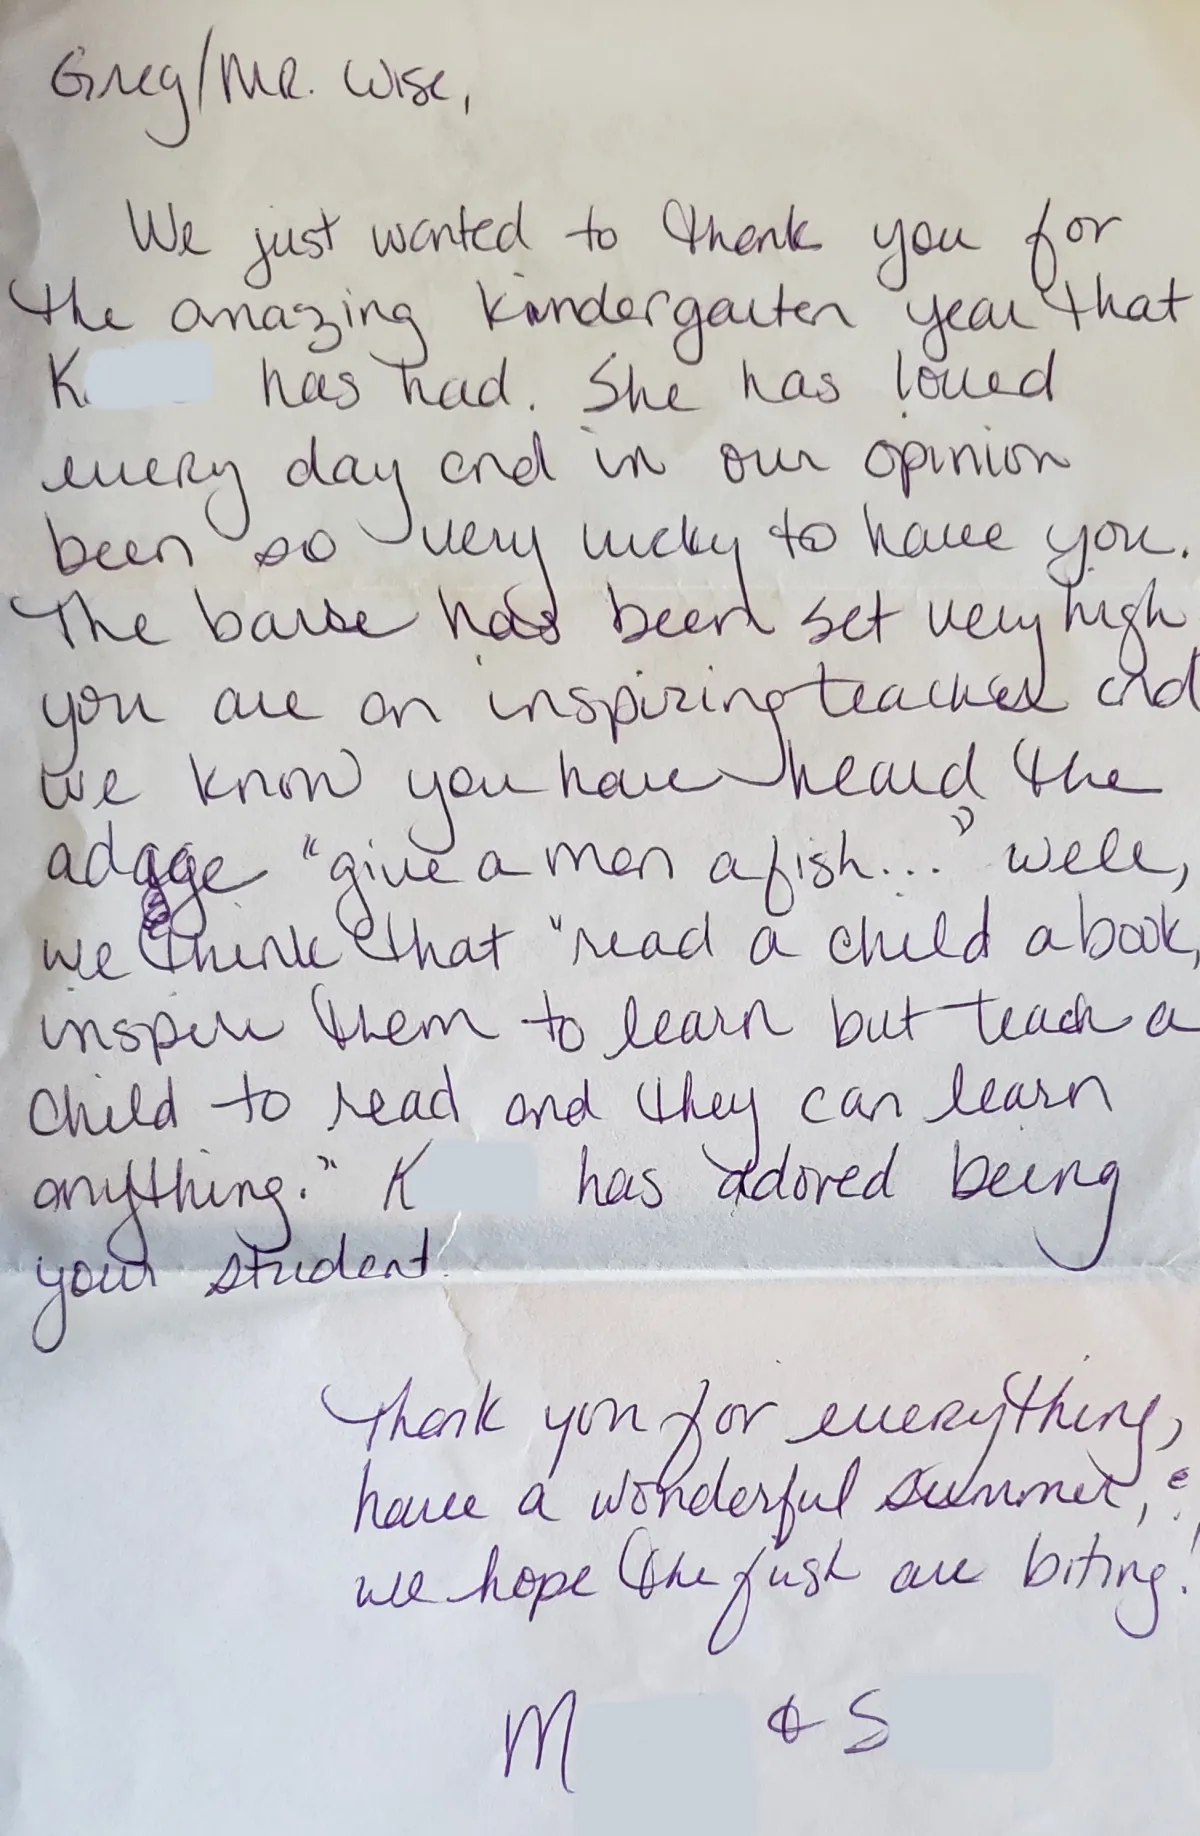 Greg/Mr. Wise,
We just wanted to thank you for
the amazing kindergarten year that
K has had. She has loved
every day and in our opinion
been so very lucky to have you.
The barre has been set very high
you are an inspiring teacher and
we know you have heard the
adage "give a man a fish..." well,
we think that "read a child a book,
inspire them to learn but teach a
child to read and they can learn
anything." K has adored being
your student.
Thank you for everything,
have a wonderful summer, &
we hope the fish are biting!
M & S